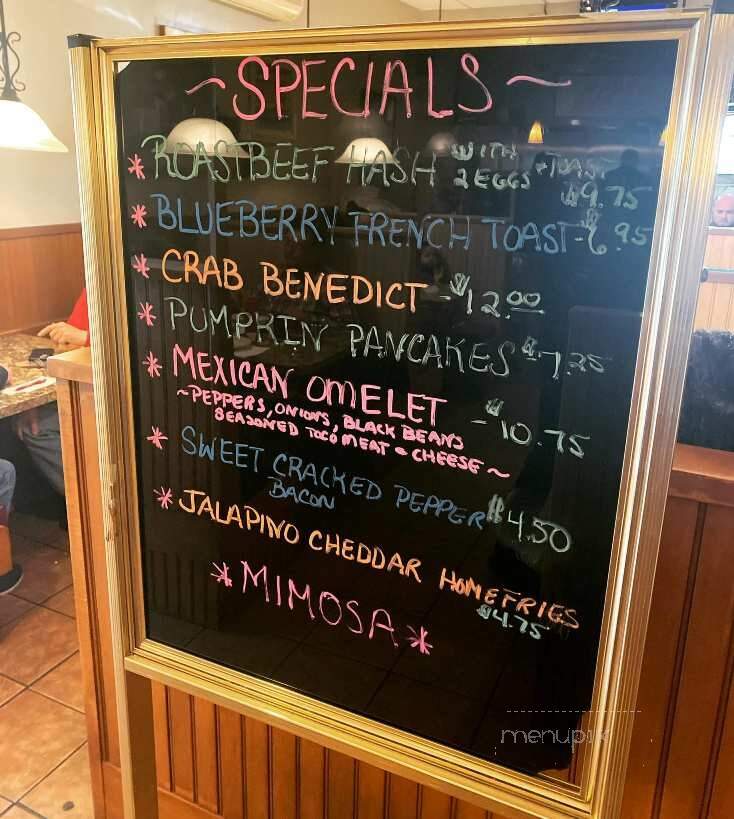 ~SPECIALS~
* ROASTBEEF HASH WITH 2 EGGS + TOAST $9.75
* BLUEBERRY FRENCH TOAST - $6.95
* CRAB BENEDICT - $12.00
* PUMPKIN PANCAKES $7.25
* MEXICAN OMELET - $10.75
~PEPPERS, ONIONS, BLACK BEANS
SEASONED TOCO MEAT & CHEESE~
* SWEET CRACKED PEPPER $4.50
BACON
* JALAPINO CHEDDAR HOMEFRIES
$4.75
* MIMOSA *
menupix